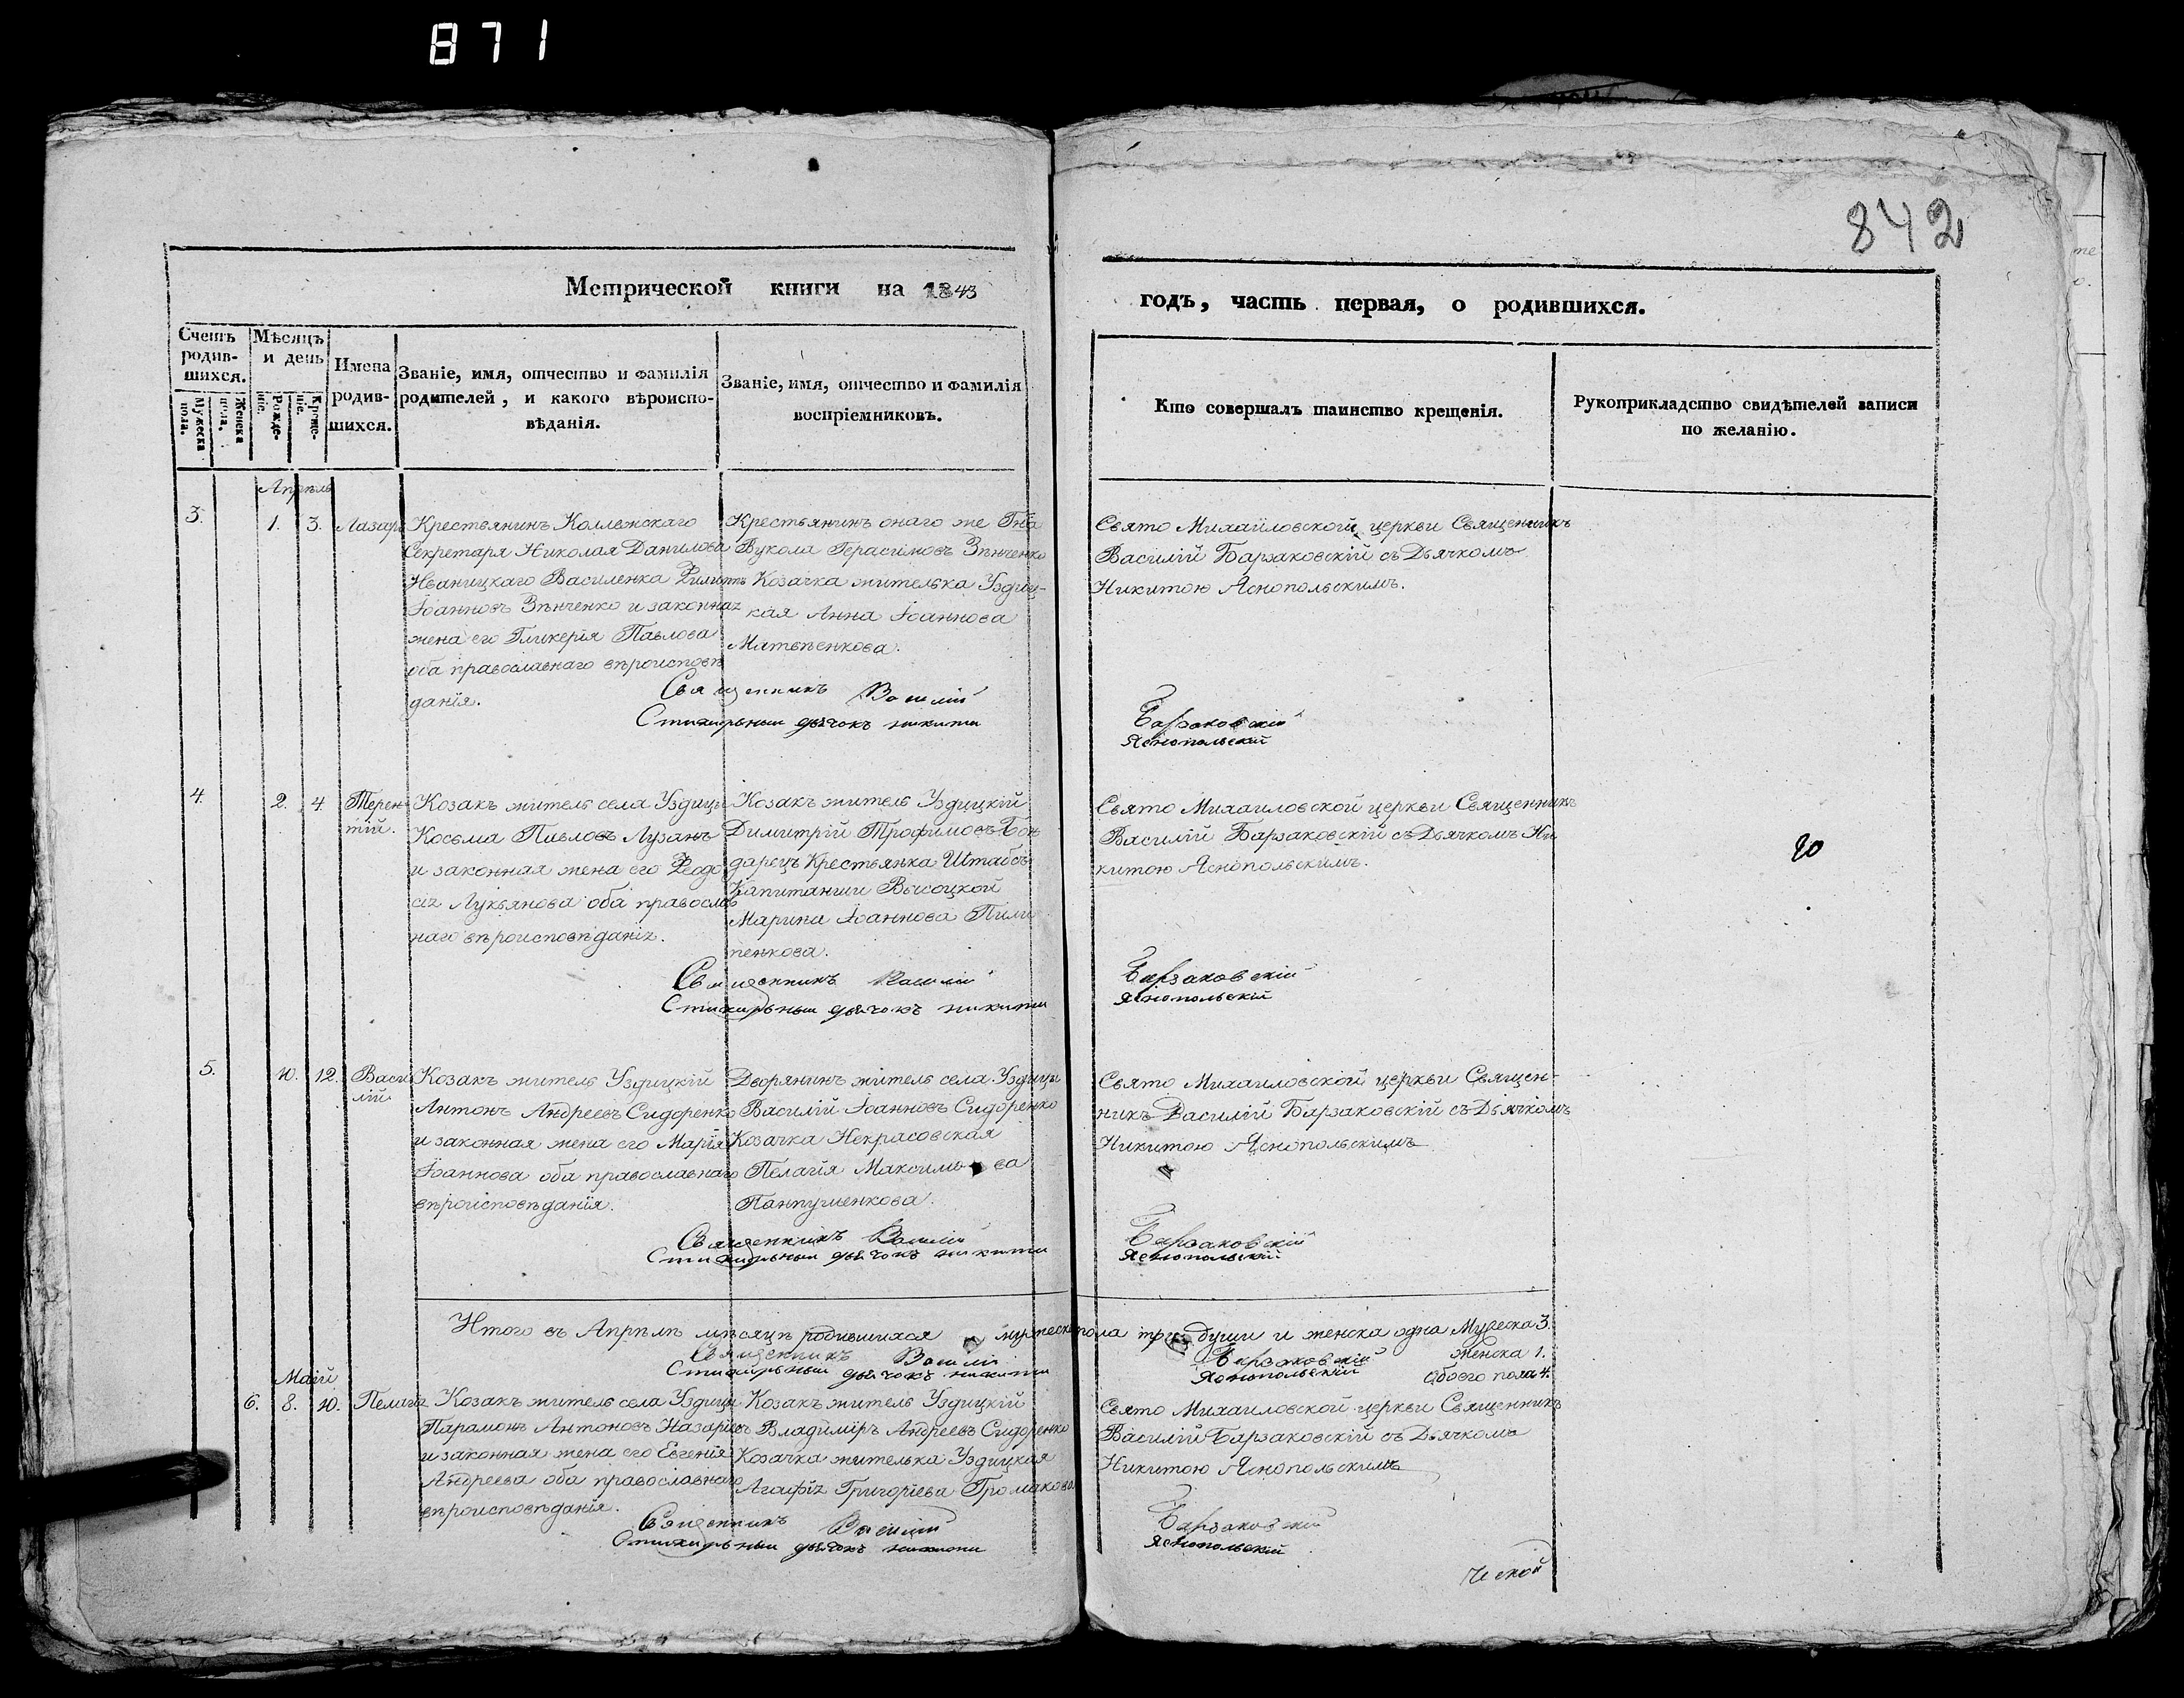 871
842
Метрической книги на 1843
годъ, часть первая, о родившихся.
Счетъ родив-шихся.
Мужеска пола.
Женска пола.
Мѣсяцъ и день
Рожде-ніе.
Креще-ніе.
Имена родив-шихся.
Званіе, имя, отчество и фамилія
родителей, и какого вѣроиспо-
вѣданія.
Званіе, имя, отчество и фамилія
воспріемниковъ.
Кто совершалъ таинство крещенія.
Рукоприкладство свидѣтелей записи
по желанію.
Апрѣль
3. 1. 3. Лазарь
Крестьянинъ Коллежскаго
Секретаря Николая Данилова
Иваницкаго Василенка Филиппъ
Іоанновъ Зѣнченко и законная
жена его Гликерія Павлова
оба православнаго вѣроисповѣ
данія.
Крестьянинъ онаго же Гна
Вукола Герасимовъ Зѣнченко
Козачка жителька Уздиц-
кая Анна Іоаннова
Матвѣенкова.
Свято Михайловской церкви Священникъ
Василій Барзаковскій съ Дьячкомъ
Никитою Яснопольскимъ.
Священникъ Василій Барзаковскій
Стихарный дьячокъ Никита Яснопольскій
4. 2. 4. Терен-
тій.
Козакъ житель села Уздицы
Косьма Павловъ Лузанъ
и законная жена его Феодо
сія Лукьянова оба православ
наго вѣроисповѣданія.
Козакъ житель Уздицкій
Димитрій Трофимовъ Бон
дарецъ Крестьянка Штабсъ
Капитанши Высоцкой
Марина Іоаннова Пили
пенкова.
Свято Михаиловской церкви Священникъ
Василій Барзаковскій съ Дьячкомъ Ни
китою Яснопольскимъ.
Священникъ Василій Барзаковскій
Стихарный дьячокъ Никита Яснопольскій
5. 10. 12. Васи
лій
Козакъ житель Уздицкій
Антонъ Андреевъ Сидоренко
и законная жена его Марія
Іоаннова оба православнаго
вѣроисповѣданія.
Дворянинъ житель села Уздицы
Василій Іоанновъ Сидоренко
Козачка Некрасовская
Пелагія Максимова
Панпушенкова.
Свято Михаиловской церкви Священ-
никъ Василій Барзаковскій съ Дьячкомъ
Никитою Яснопольскимъ
Священникъ Василій Барзаковскій
Стихарный дьячокъ Никита Яснопольскій
Итого въ Апрѣлѣ мѣсяцѣ родившихся мужеска пола три души и женска одна Мужеска 3.
Женска 1.
Обоего пола 4.
Священникъ Василій Барзаковскій
Стихарный дьячокъ Никита Яснопольскій
Маій
6. 8. 10. Пелагія
Козакъ житель села Уздицы
Парамонъ Антоновъ Назаріевъ
и законная жена его Евгенія
Андреева оба православнаго
вѣроисповѣданія.
Козакъ житель Уздицкій
Владиміръ Андреевъ Сидоренко
Козачка жителька Уздицкая
Агафія Григоріева Громакова.
Свято Михаиловской церкви Священникъ
Василій Барзаковскій съ Дьячкомъ
Никитою Яснопольскимъ
Священникъ Василій Барзаковскій
Стихарный дьячокъ Никита Яснопольскій